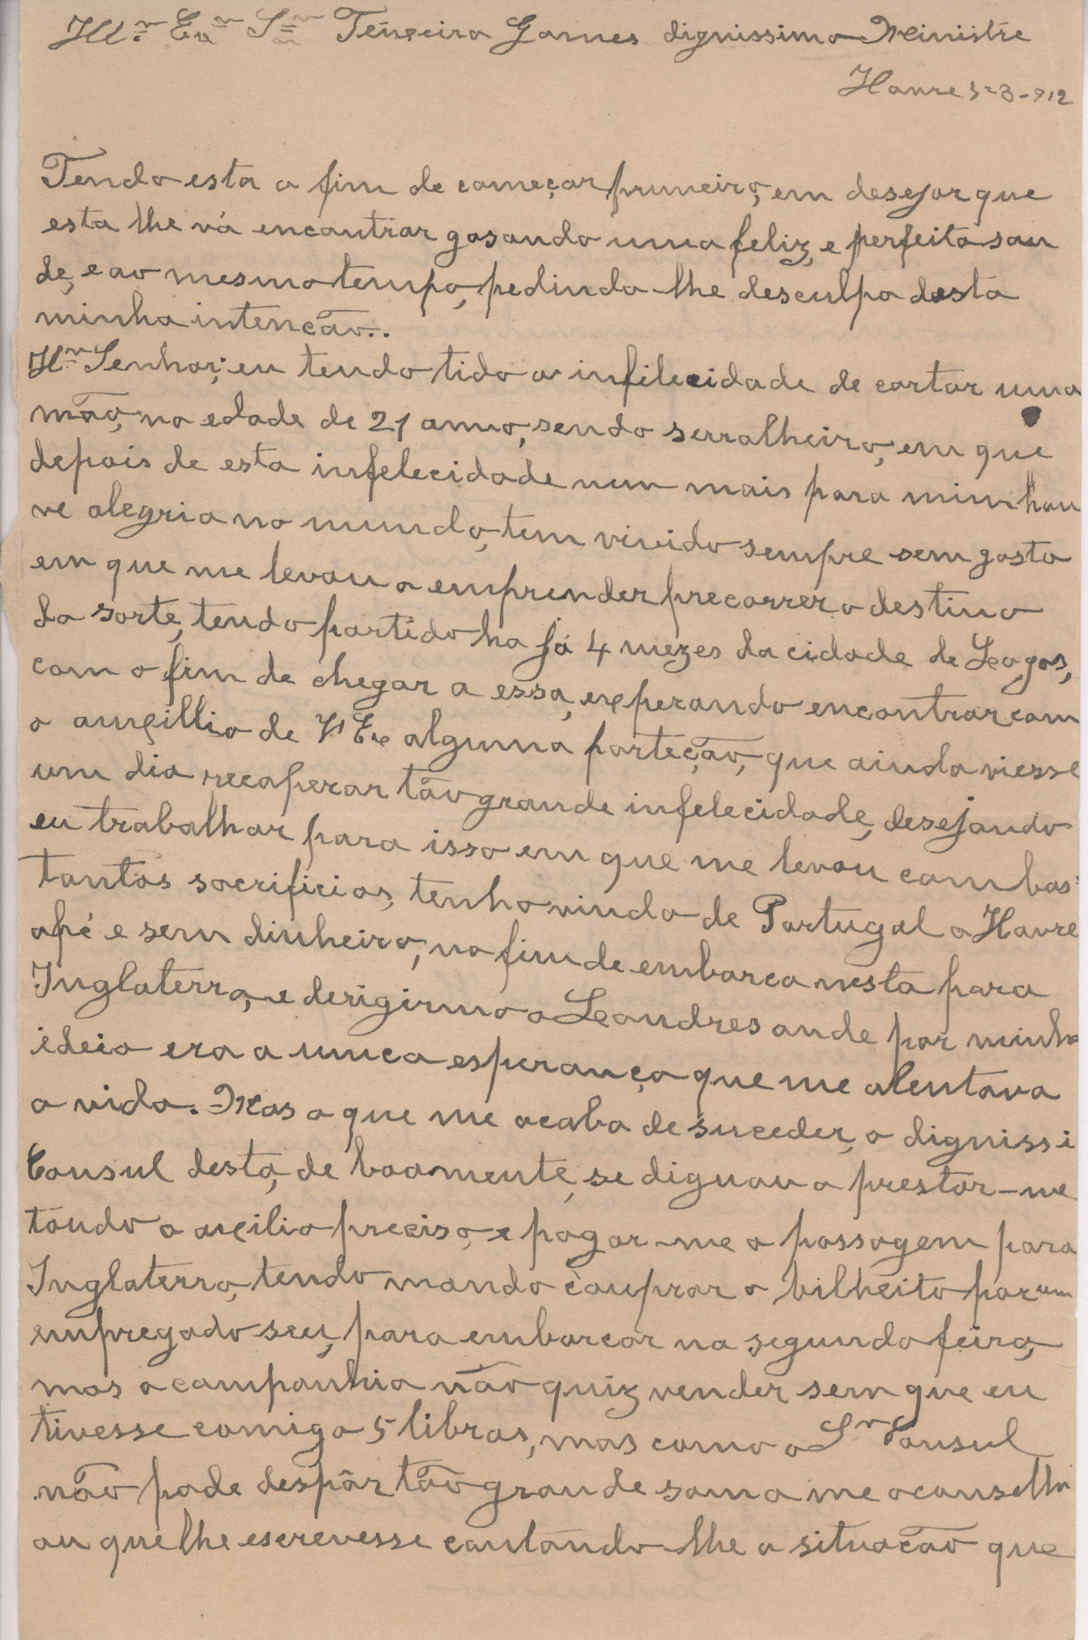 Ill.mo Ex.mo S.nr Teixeira Gomes dignissimo Ministre
Havre 5-3-912
Tendo esta o fim de começar primeiro, em desejar que
esta lhe vá encontrar gosando uma feliz, e perfeita sau
de, e ao mesmo tempo, pedindo-lhe desculpa desta
minha intenção..
Il.mo Senhor; eu tendo tido a infilecidade de cortar uma
mão, na edade de 21 anno, sendo serralheiro, em que
depois de esta infelecidade nun mais para mim hou
ve alegria no mundo, tem vivido sempre sem gosto
em que me levou a emprender precorrer o destino
da sorte, tendo partido ha já 4 mezes da cidade de Lagos,
com o fim de chegar a essa, experando encontrar com
o auxillio de V Ex alguma porteção, que ainda viesse
um dia recoperar tão grande infelecidade, desejando
eu trabalhar para isso em que me levou com bas
tantos sacrificios, tenho vindo de Portugal a Havre
apé e sem dinheiro, no fim de embarca nesta para
Inglaterra, e derigirmo a Leondres onde por minha
ideia era a unuca esperança que me alentava
a vida. Mas o que me acaba de suceder, o dignissi
Consul desta, de boamente, se dignou a prestar-me
tôudo o auxilio preciso, e pagar-me a passagem para
Inglaterra, tendo mando comprar o bilheito por um
empregado seu, para embarcar na segunda feira,
mas a companhia não quiz vender sem que eu
tivesse comigo 5 libras, mas como o S.nr Consul
não pode despôr tão grande soma me aconselh
ou que lhe escrevesse contando-lhe a situação que